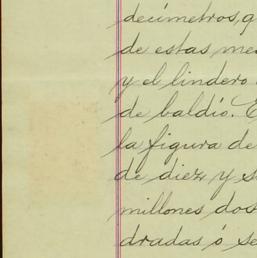 decímetros, q
de estas me
y el lindero
de baldío. E
la figura de
de diez y s
millones dos
dradas ó se